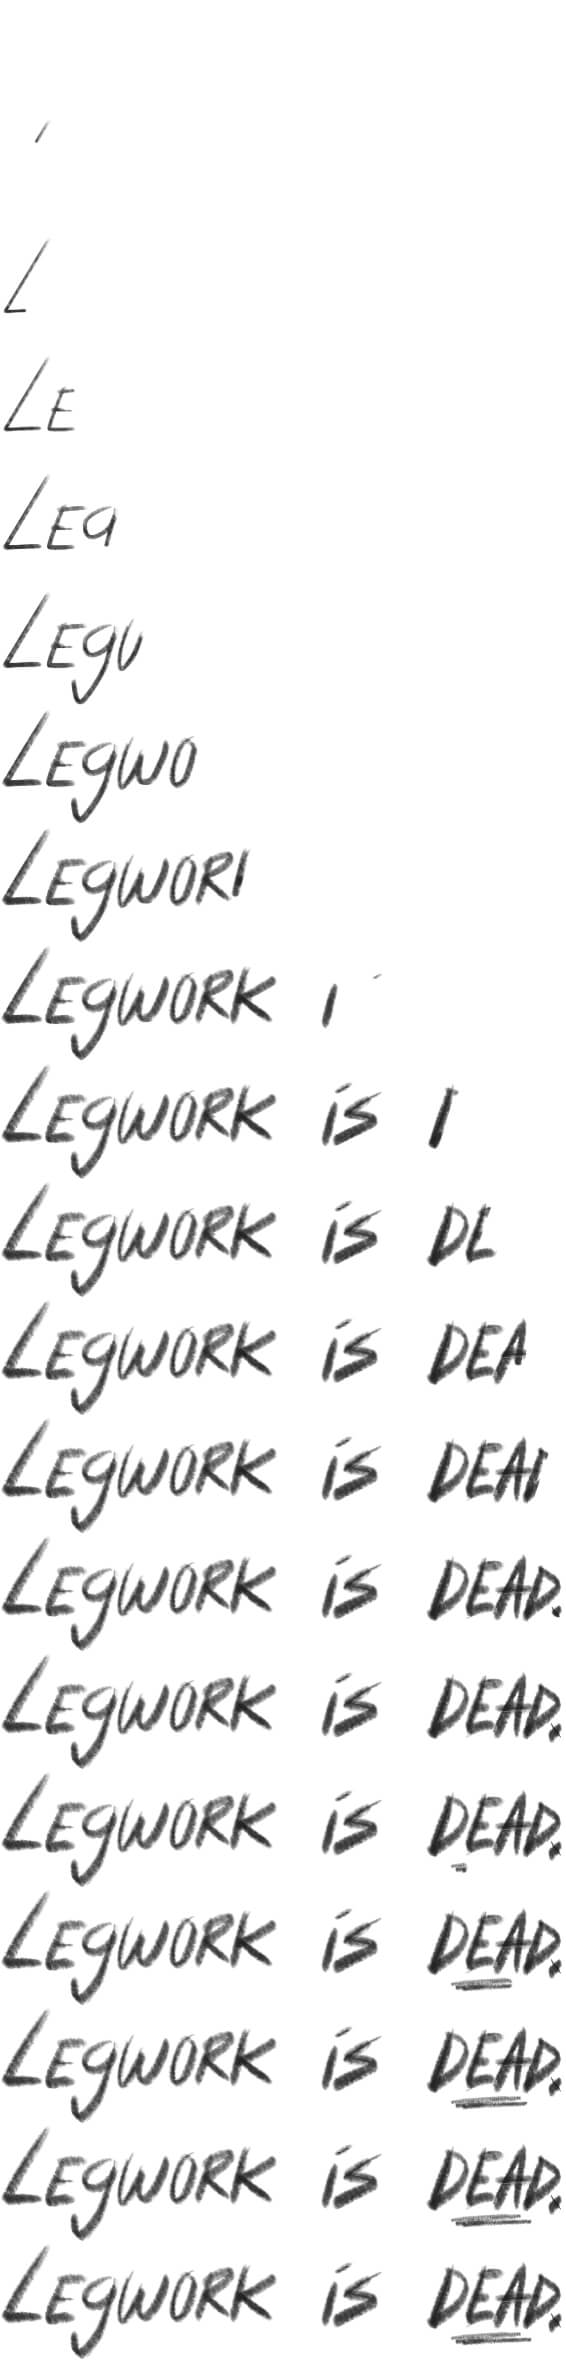 L
LE
LEG
LEGU
LEGWO
LEGWORI
LEGWORK I
LEGWORK is I
LEGWORK is DL
LEGWORK is DEA
LEGWORK is DEAI
LEGWORK is DEAD.
LEGWORK is DEAD.
LEGWORK is DEAD.
LEGWORK is DEAD.
LEGWORK is DEAD.
LEGWORK is DEAD.
LEGWORK is DEAD.